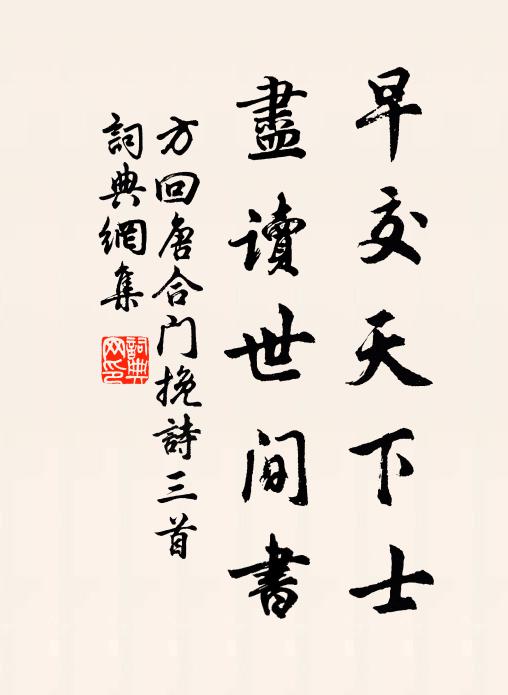 早交天下士
盡讀世间書
方回唐合门挽詩三首
詞典網集
詞典网印